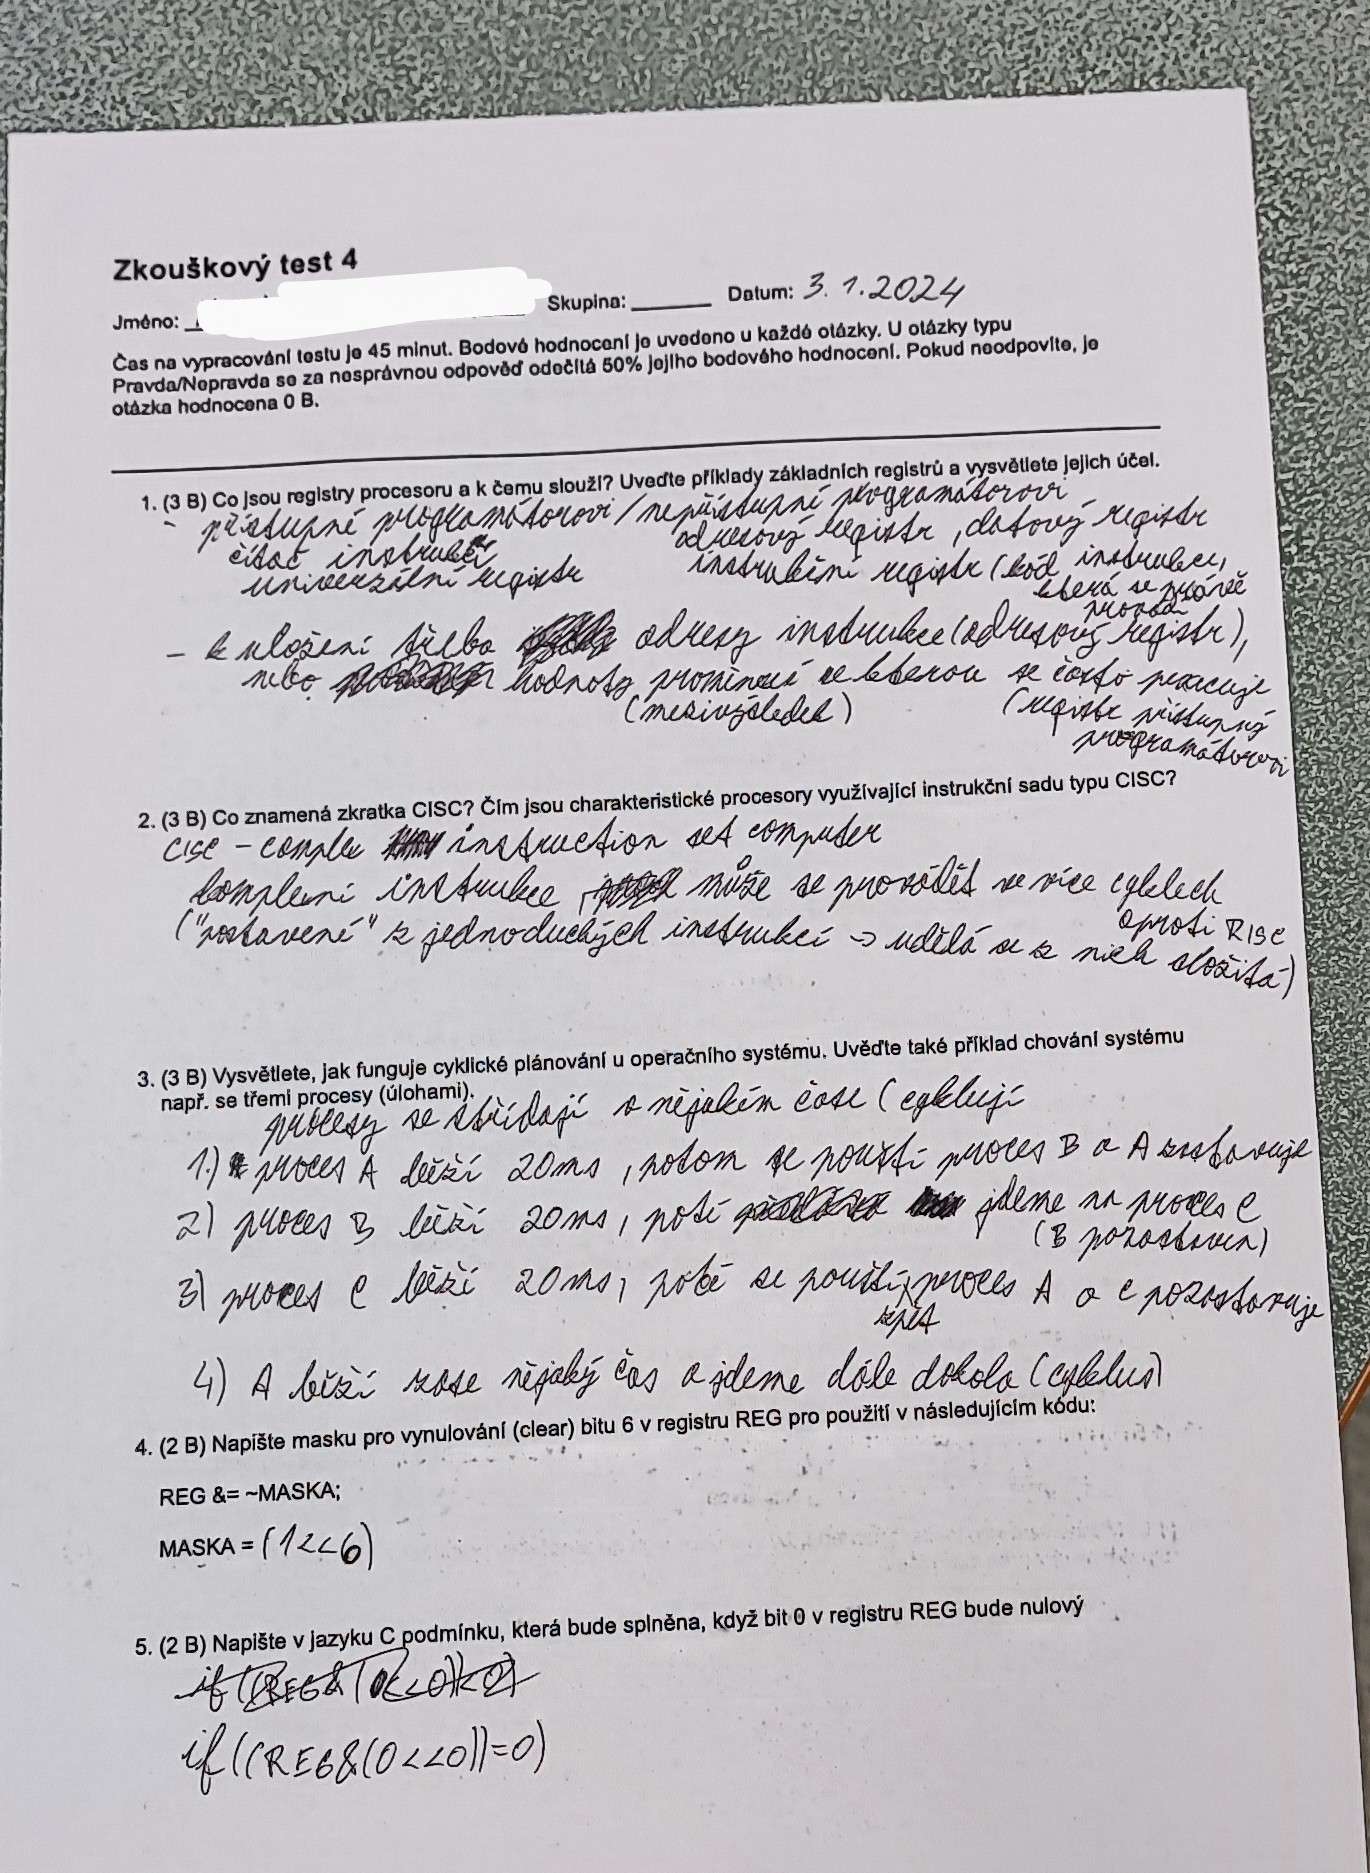 Zkouškový test 4
Jméno: Skupina: Datum: 3. 1. 2024
Čas na vypracování testu je 45 minut. Bodové hodnocení je uvedeno u každé otázky. U otázky typu
Pravda/Nepravda se za nesprávnou odpověď odečítá 50% jejího bodového hodnocení. Pokud neodpovíte, je
otázka hodnocena 0 B.
1. (3 B) Co jsou registry procesoru a k čemu slouží? Uveďte příklady základních registrů a vysvětlete jejich účel.
- přístupné programátorovi / nepřístupní programátorovi
čítač instrukcí
univerzální registr
adresový registr, datový registr
instrukční registr (kód instrukce,
která se právě
provádí
- k uložení třeba adresy instrukce (adresový registr),
nebo hodnoty proměnné se kterou se často pracuje
(mezivýsledek) (registr přístupný
programátorovi
2. (3 B) Co znamená zkratka CISC? Čím jsou charakteristické procesory využívající instrukční sadu typu CISC?
CISC - complex instruction set computer
komplexní instrukce, může se provádět ve více cyklech
oproti RISC
("postavené" z jednoduchých instrukcí -> udělá se z nich složitá)
3. (3 B) Vysvětlete, jak funguje cyklické plánování u operačního systému. Uvěďte také příklad chování systému
např. se třemi procesy (úlohami).
procesy se střídají v nějakém čase (cyklují
1.) proces A běží 20ms, potom se pouští proces B a A zastavuje
2) proces B běží 20ms, poté jdeme na proces C
(B pozastaven)
3) proces C běží 20ms, poté se pouští zpět proces A a C pozastavuje
4) A běží zase nějaký čas a jdeme dále dokola (cyklus)
4. (2 B) Napište masku pro vynulování (clear) bitu 6 v registru REG pro použití v následujícím kódu:
REG &= ~MASKA;
MASKA = (1<<6)
5. (2 B) Napište v jazyku C podmínku, která bude splněna, když bit 0 v registru REG bude nulový
if((REG&(0<<0))=0)